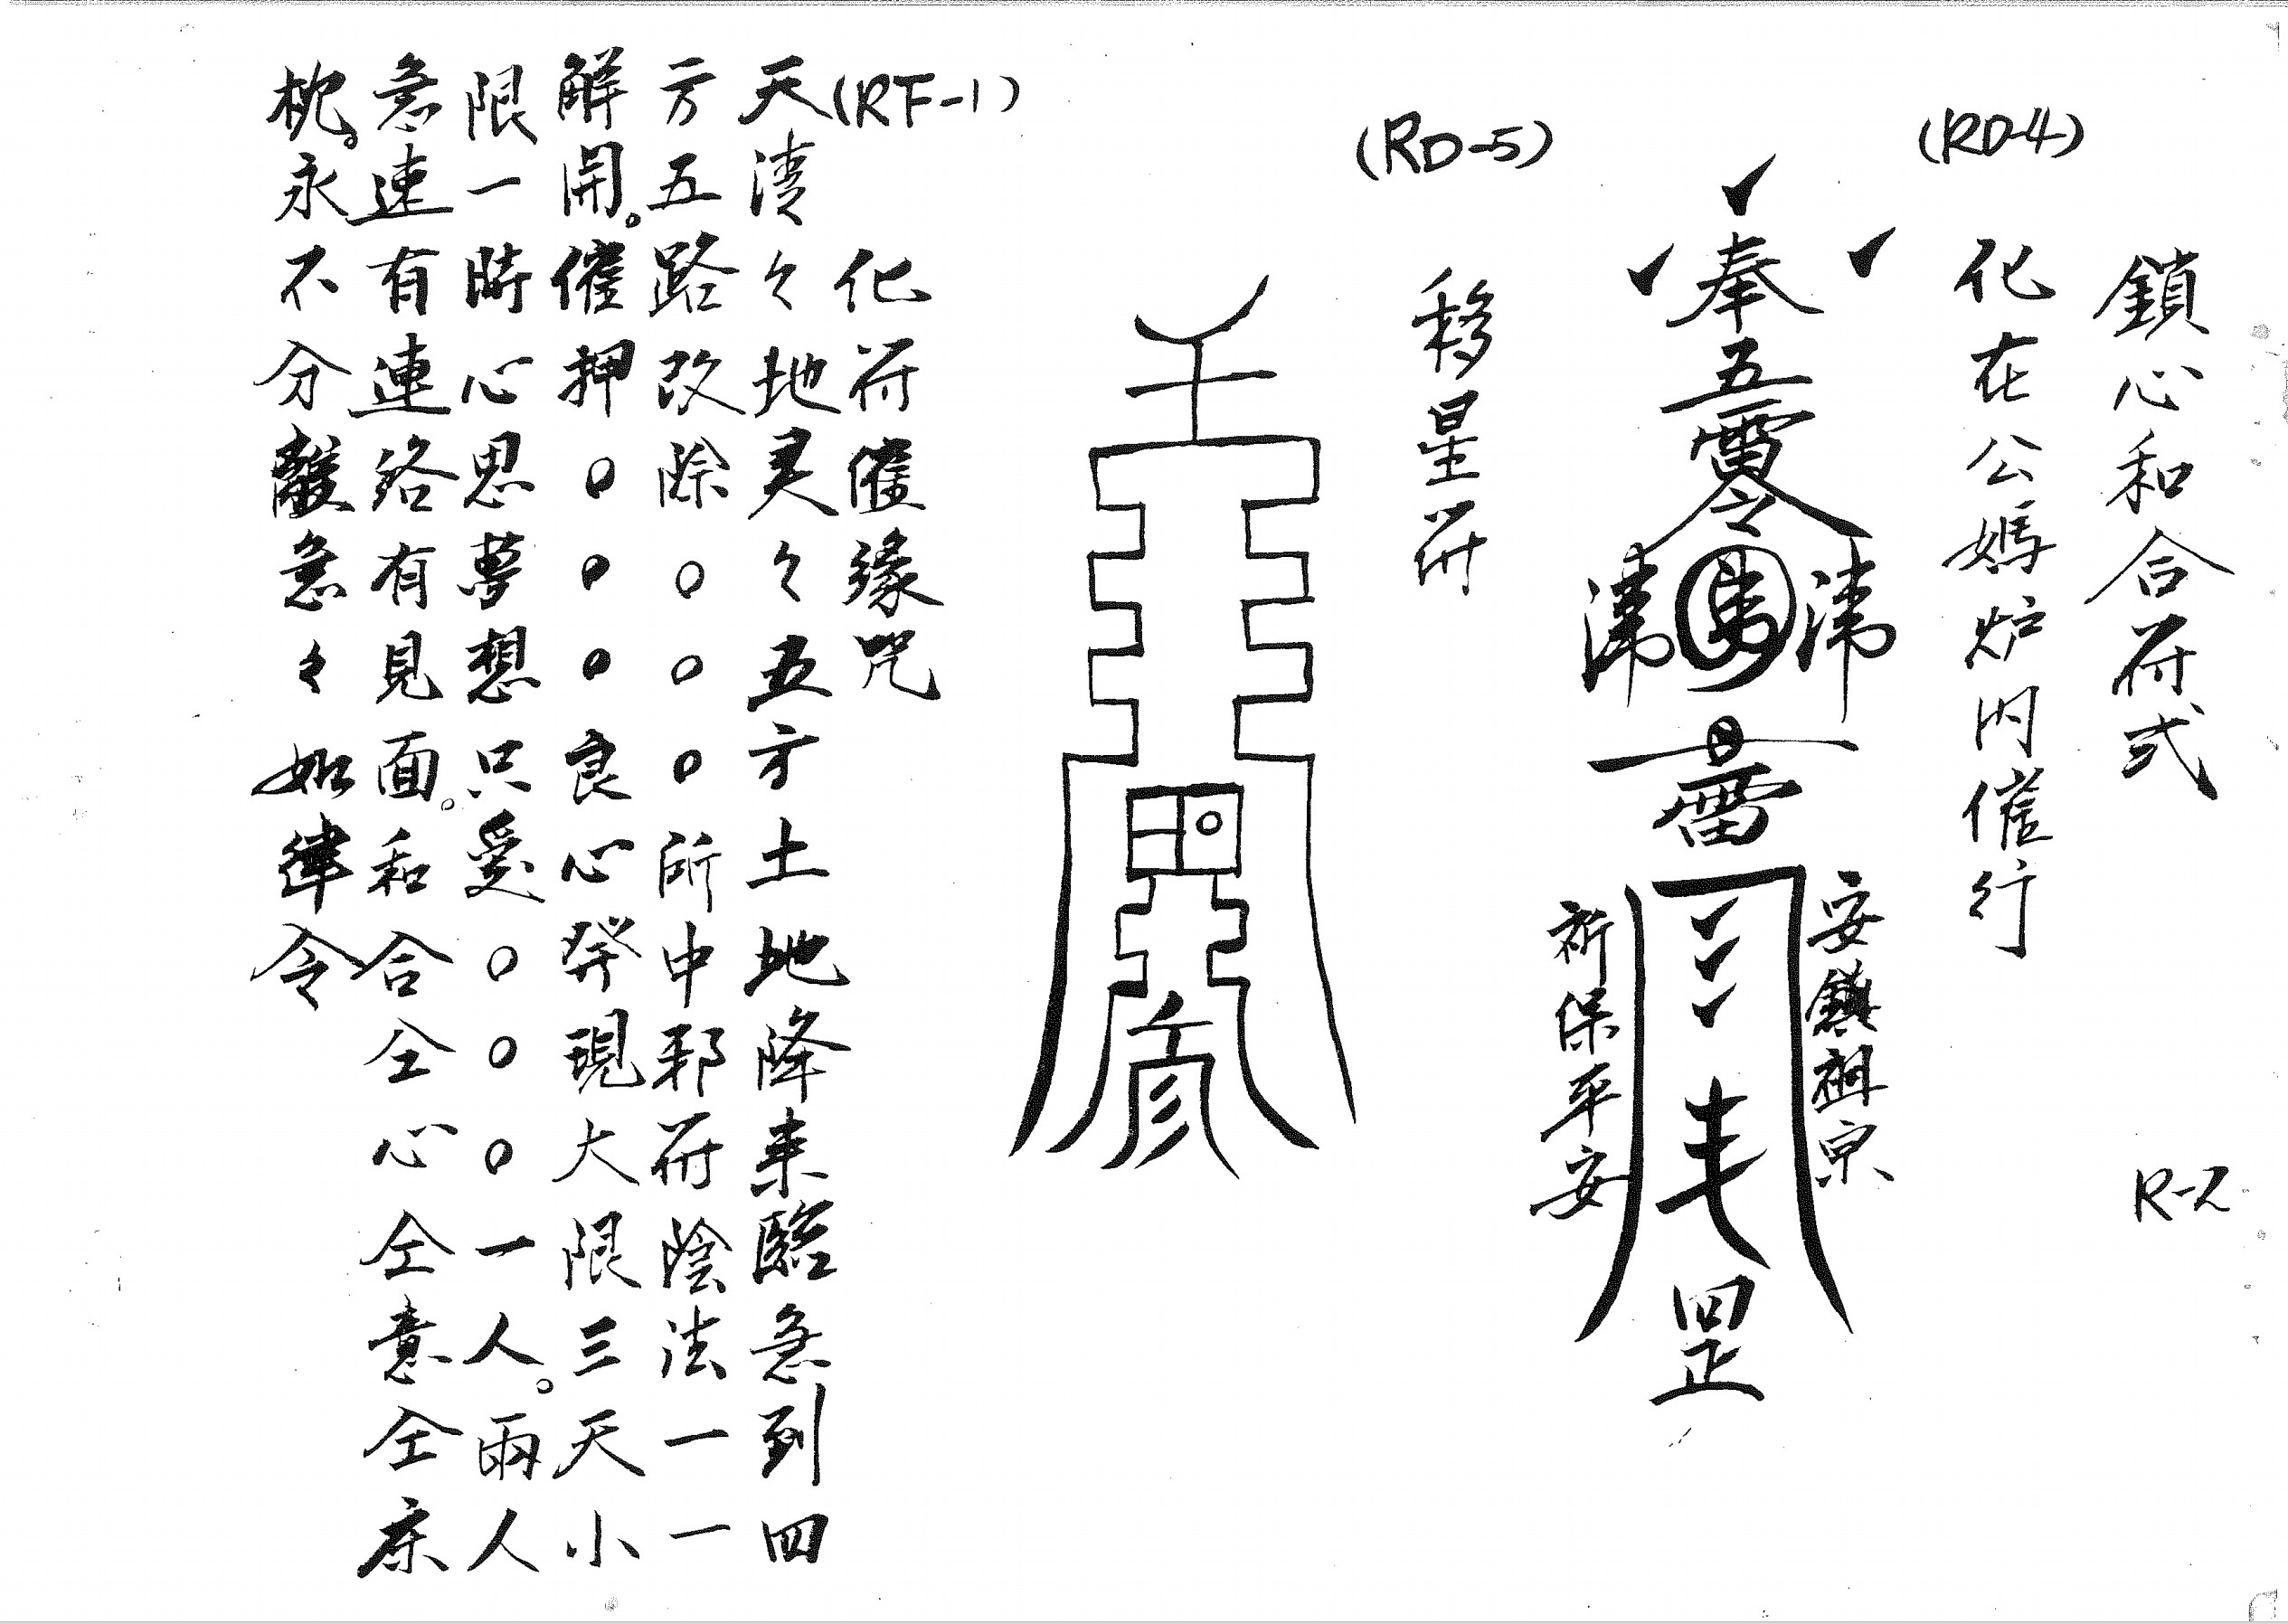 鎖心和合符式
R-2
(RD-4)
化在公媽炉内催行
奉
五
雷
令
安鎮祖宗
祈保平安
罡
(RD-5)
移星符
(RF-1)
化符催缘咒
天清々地灵々五方土地降来臨急到四
方五路改除○○○所中邪符陰法一一
解開。催押○○○良心発現大限三天小
限一時心思夢想只爱○○○一人。兩人
急速有連络有見面。和合仝心仝意仝床
枕。永不分離急々如律令